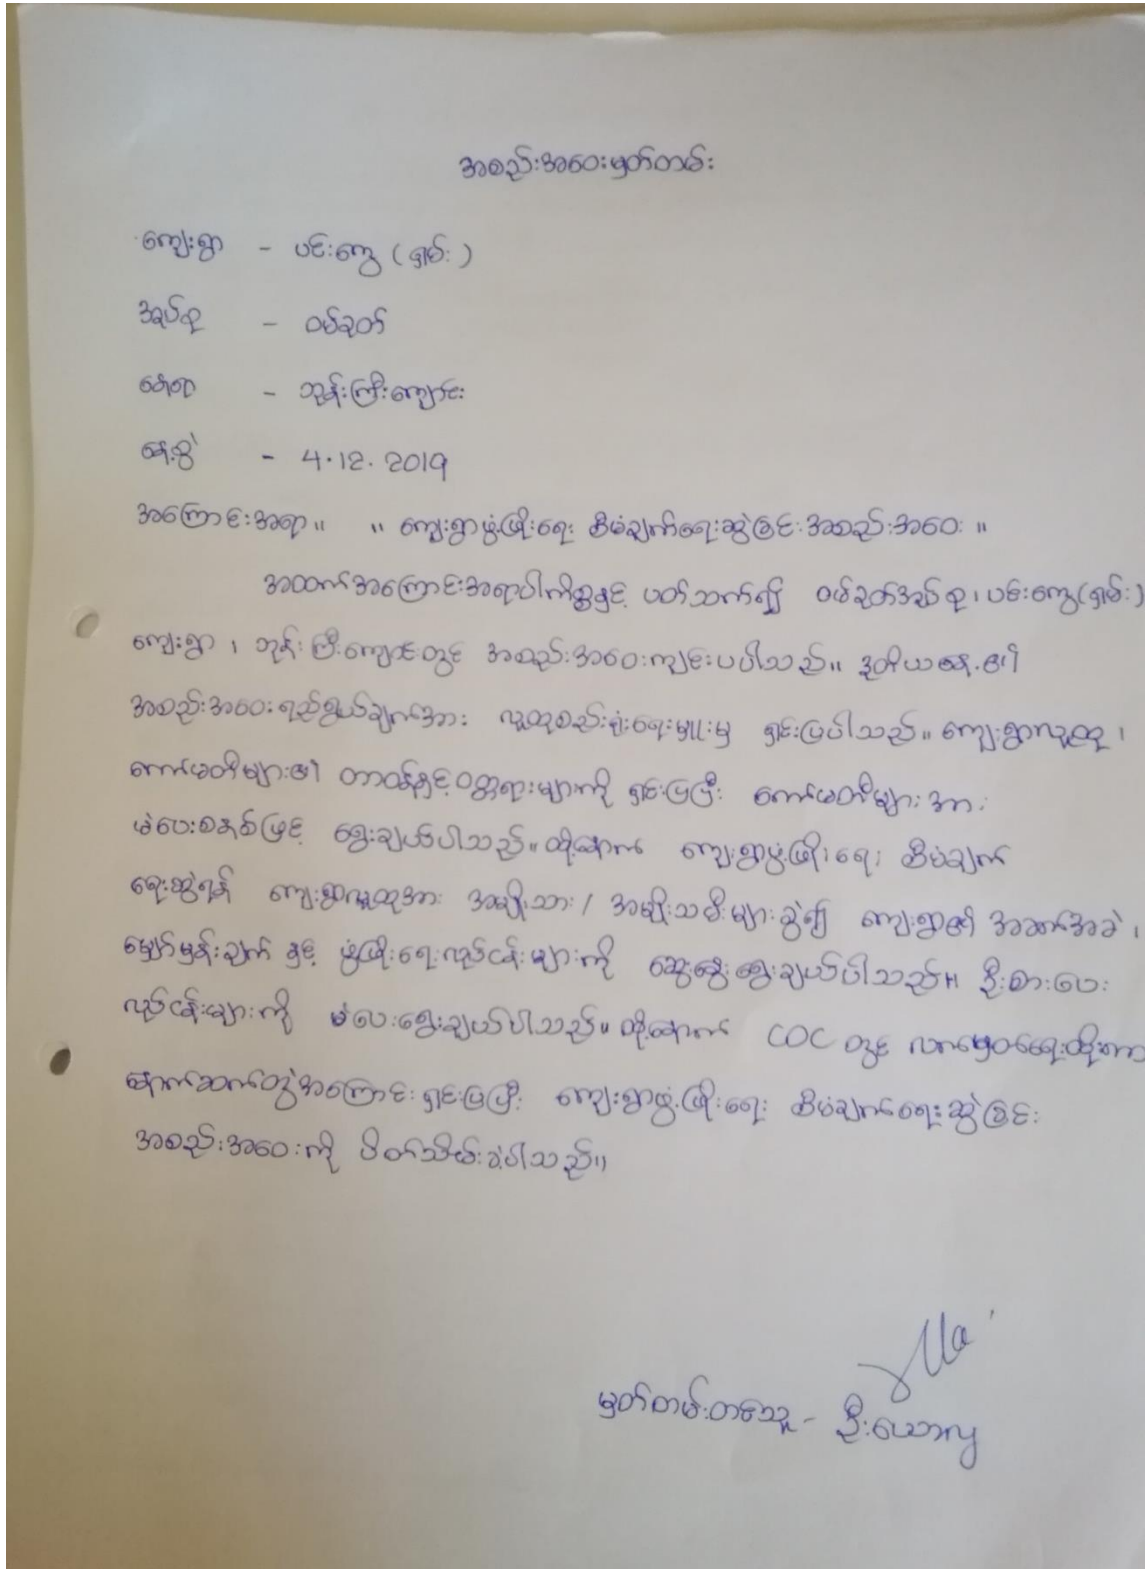 အစည်းအဝေးမှတ်တမ်း
ကျေးရွာ - ပင်းကွေ (ရှမ်း)
အုပ်စု - ဝမ်ခုတ်
နေရာ - ဘုန်းကြီးကျောင်း
နေ့စွဲ - 4.12.2019
အကြောင်းအရာ။ ။ ကျေးရွာဖွံ့ဖြိုးရေး စီမံချက်ရေးဆွဲခြင်းအစည်းအဝေး ။
အထက်အကြောင်းအရာပါကိစ္စနှင့် ပတ်သက်၍ ဝမ်ခုတ်အုပ်စု၊ ပင်းကွေ(ရှမ်း)
ကျေးရွာ ၊ ဘုန်းကြီးကျောင်းတွင် အစည်းအဝေးကျင်းပပါသည်။ ဒုတိယနေ့၏
အစည်းအဝေးရည်ရွယ်ချက်အား လူထုစည်းရုံးရေးမှူးမှ ရှင်းပြပါသည်။ ကျေးရွာလူထု ၊
ကော်မတီများ၏ တာဝန်နှင့်ဝတ္တရားများကို ရှင်းပြပြီး ကော်မတီများအား
မဲပေးစနစ်ဖြင့် ရွေးချယ်ပါသည်။ ထို့နောက် ကျေးရွာဖွံ့ဖြိုးရေး စီမံချက်
ရေးဆွဲရန် ကျေးရွာလူထုအား အမျိုးသား / အမျိုးသမီးများခွဲ၍ ကျေးရွာ၏ အခက်အခဲ ၊
မျှော်မှန်းချက် နှင့် ဖွံ့ဖြိုးရေးလုပ်ငန်းများကို ဆွေးနွေးရွေးချယ်ပါသည်။ ဦးစားပေး
လုပ်ငန်းများကို မဲပေးရွေးချယ်ပါသည်။ ထို့နောက် COC တွင် လက်မှတ်ရေးထိုးကာ
နောက်ဆက်တွဲအကြောင်း ရှင်းပြပြီး ကျေးရွာဖွံ့ဖြိုးရေး စီမံချက်ရေးဆွဲခြင်း
အစည်းအဝေးကို ပိတ်သိမ်းခဲ့ပါသည်။
မှတ်တမ်းတင်သူ - ဦးယောလှ